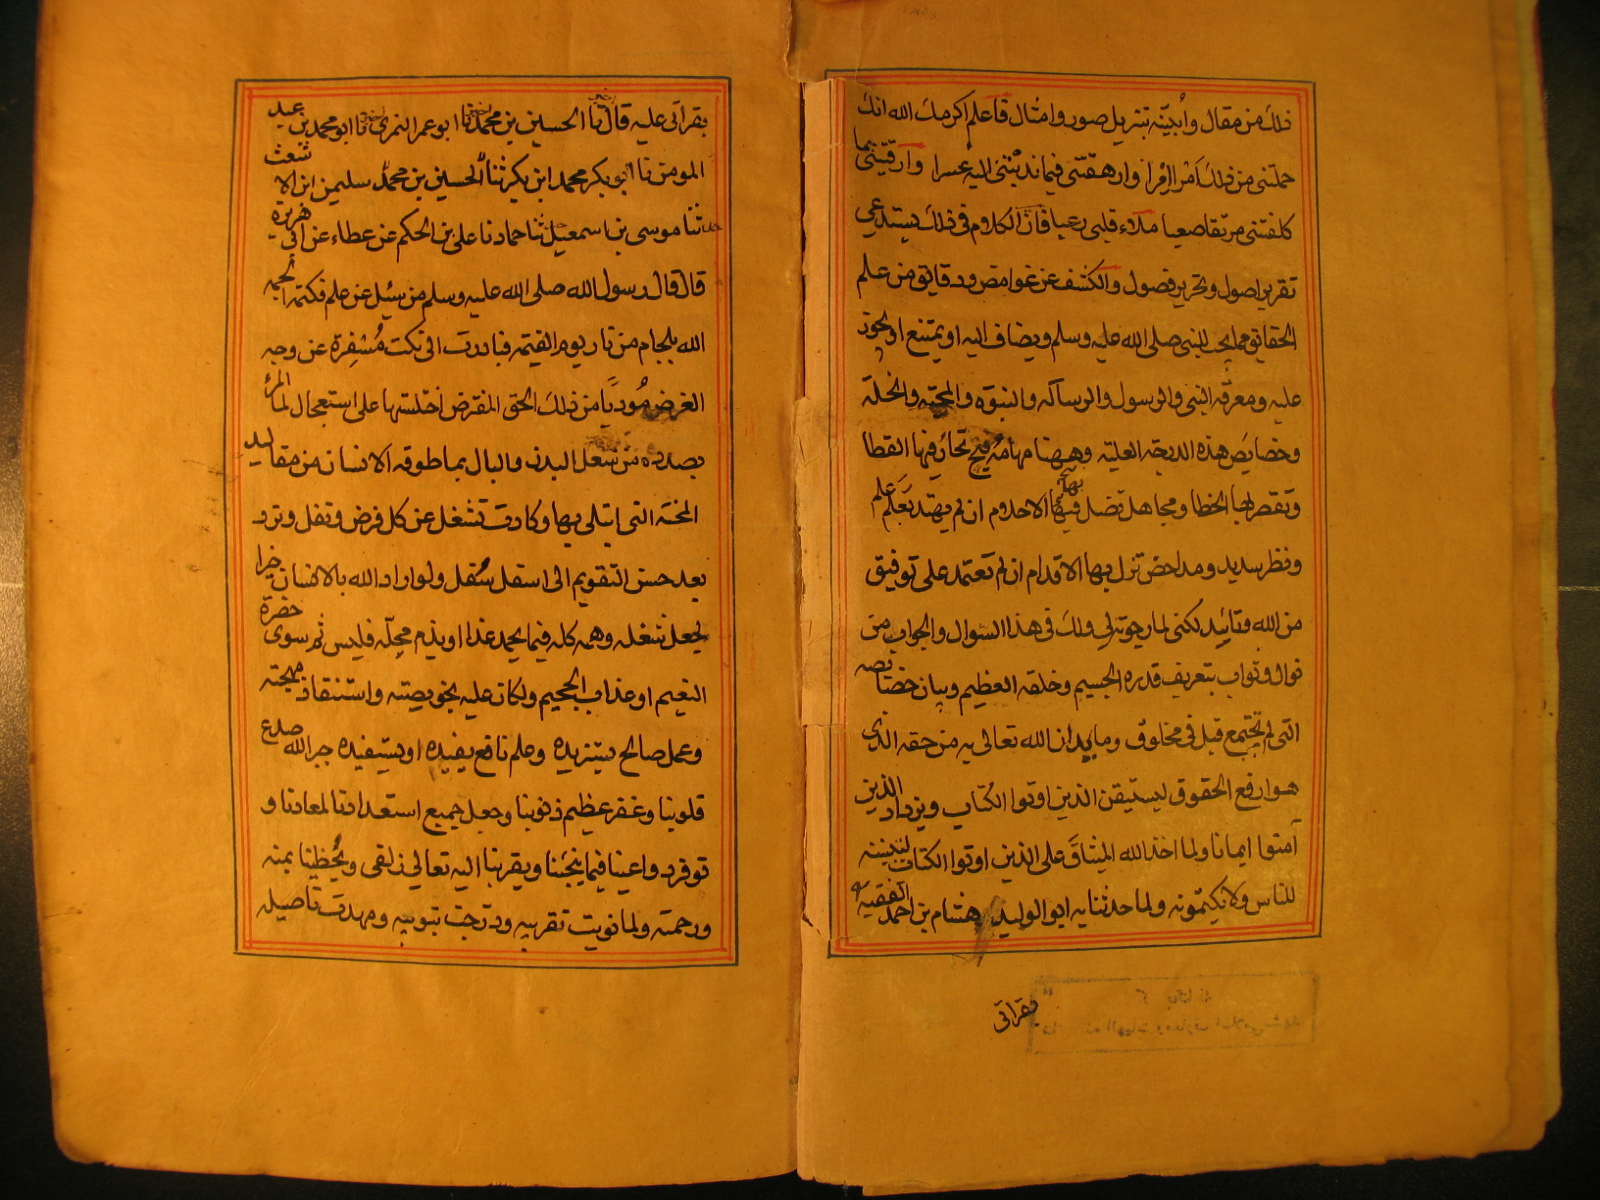 ذلك من مقال وأبينه بتنزيل صور وامثال فاعلم اكرمك الله انك
حملتنى من ذلك امرا امرا وارهقتنى فيما ندبتنى اليه عسرا وارقيتنى بما
كلفتنى مرتقا صعبا ملاء قلبى رعبا فان الكلام فى ذلك يستدعى
تقرير اصول وتحرير فصول والكشف عن غوامض ودقايق من علم
الحقايق مما يجب للنبى صلى الله عليه وسلم ويضاف اليه او يمتنع او يجوز
عليه ومعرفة النبى والرسول والرسالة والنبوة والمحبة والخلة
وخصايص هذه الدرجة العلية وههنا مهامه فيح تحار فيها القطا
وتقصر بها الخطا ومجاهل تضل فيها الاحلام ان لم يهتد بعلم علم
ونظر سديد ومداحض تزل بها الاقدام ان لم تعتمد على توفيق
من الله وتائيد لكنى لما رجوته لى ولك فى هذا السوال والجواب من
نوال وثواب بتعريف قدره الجسيم وخلقه العظيم وبيان خصايصه
التى لم تجتمع قبل فى مخلوق وما يدان الله تعالى به من حقه الذى
هو ارفع الحقوق ليستيقن الذين اوتوا الكتاب ويزداد الذين
آمنوا ايمانا ولما اخذ الله الميثاق على الذين اوتوا الكتاب لتبيننه
للناس ولا تكتمونه ولما حدثنا به ابو الوليد هشام بن احمد الفقيه
بقراتى
بقراتى عليه قال ثنا الحسين بن محمد ثنا ابو عمر النمرى ثنا ابو محمد بن عبد
المومن نا ابو بكر محمد ابن بكر ثنا الحسين بن محمد سليمن ابن الاشعث
ثنا موسى بن اسمعيل ثنا حماد نا على بن الحكم عن عطاء عن ابى هريرة
قال قال رسول الله صلى الله عليه وسلم من سئل عن علم فكتمه الجمه
الله بلجام من نار يوم القيمة فبادرت الى نكت مسفرة عن وجه
الغرض موديا من ذلك الحق المفترض اختلستها على استعجال لما المرء
بصدده من شغل البدن والبال بما طوقه الانسان من مقاليد
المحنة التى ابتلى بها وكادت تشغل عن كل فرض ونفل وترد
بعد حسن التقويم الى اسفل سفل ولو اراد الله بالانسان خيرا
لجعل شغله وهمه كله فيما يحمد غدا او يذم محله فليس ثم سوى حضرة
النعيم او عذاب الجحيم ولكان عليه بخويصته واستنقاذ مهجته
وعمل صالح يستزيده وعلم نافع يفيده او يستفيده جبر الله صدع
قلوبنا وغفر عظيم ذنوبنا وجعل جميع استعدادنا لمعادنا و
توفر دواعينا فيما ينجينا ويقربنا اليه تعالى زلفى ويحظينا بمنه
ورحمته ولما نويت تقريبه ودرجت تبويبه ومهدت تاصيله